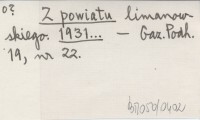 o?
Z powiatu limanow-
skiego. 1931... — Gaz. Podh.
'19, nr 22.